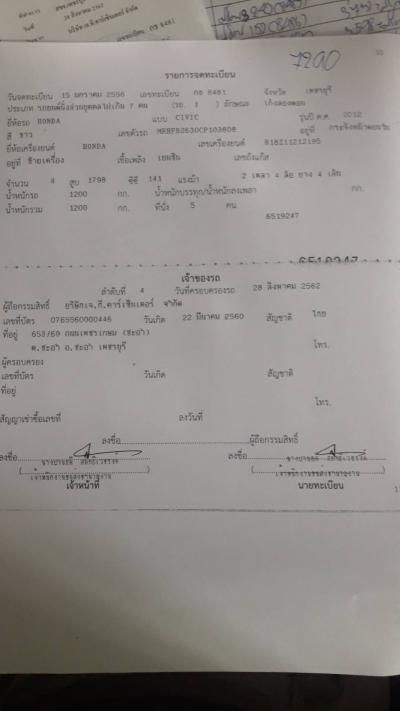 7200
รายการจดทะเบียน
วันจดทะเบียน 15 มกราคม 2556 เลขทะเบียน กธ 8481 จังหวัด เพชรบุรี
ประเภท รถยนต์นั่งส่วนบุคคลไม่เกิน 7 คน (รย. 1 ) ลักษณะ เก๋งสองตอน
ยี่ห้อรถ HONDA แบบ CIVIC รุ่นปี ค.ศ. 2012
สี ขาว เลขตัวรถ MRHFB2630CP103808 อยู่ที่
ยี่ห้อเครื่องยนต์ HONDA เลขเครื่องยนต์ R18Z11212195
อยู่ที่ ซ้ายเครื่อง เชื้อเพลิง เบนซิน เลขถังแก๊ส
จำนวน 4 สูบ 1798 ซีซี 141 แรงม้า 2 เพลา 4 ล้อ ยาง 4 เส้น
น้ำหนักรถ 1200 กก. น้ำหนักบรรทุก/น้ำหนักลงเพลา กก.
น้ำหนักรวม 1200 กก. ที่นั่ง 5 คน
6519247
6519247
เจ้าของรถ
ลำดับที่ 4 วันที่ครอบครองรถ 28 สิงหาคม 2562
ผู้ถือกรรมสิทธิ์ บริษัทเจ.ที.คาร์เซ็นเตอร์ จำกัด
เลขที่บัตร 0765560000446 วันเกิด 22 มีนาคม 2560 สัญชาติ ไทย
ที่อยู่ 653/69 ถนนเพชรเกษม (ชะอำ)
ต.ชะอำ อ.ชะอำ เพชรบุรี โทร.
ผู้ครอบครอง
เลขที่บัตร วันเกิด สัญชาติ
ที่อยู่
โทร.
สัญญาเช่าซื้อเลขที่ ลงวันที่
ลงชื่อ ผู้ถือกรรมสิทธิ์
ลงชื่อ ลงชื่อ
เจ้าหน้าที่ นายทะเบียน